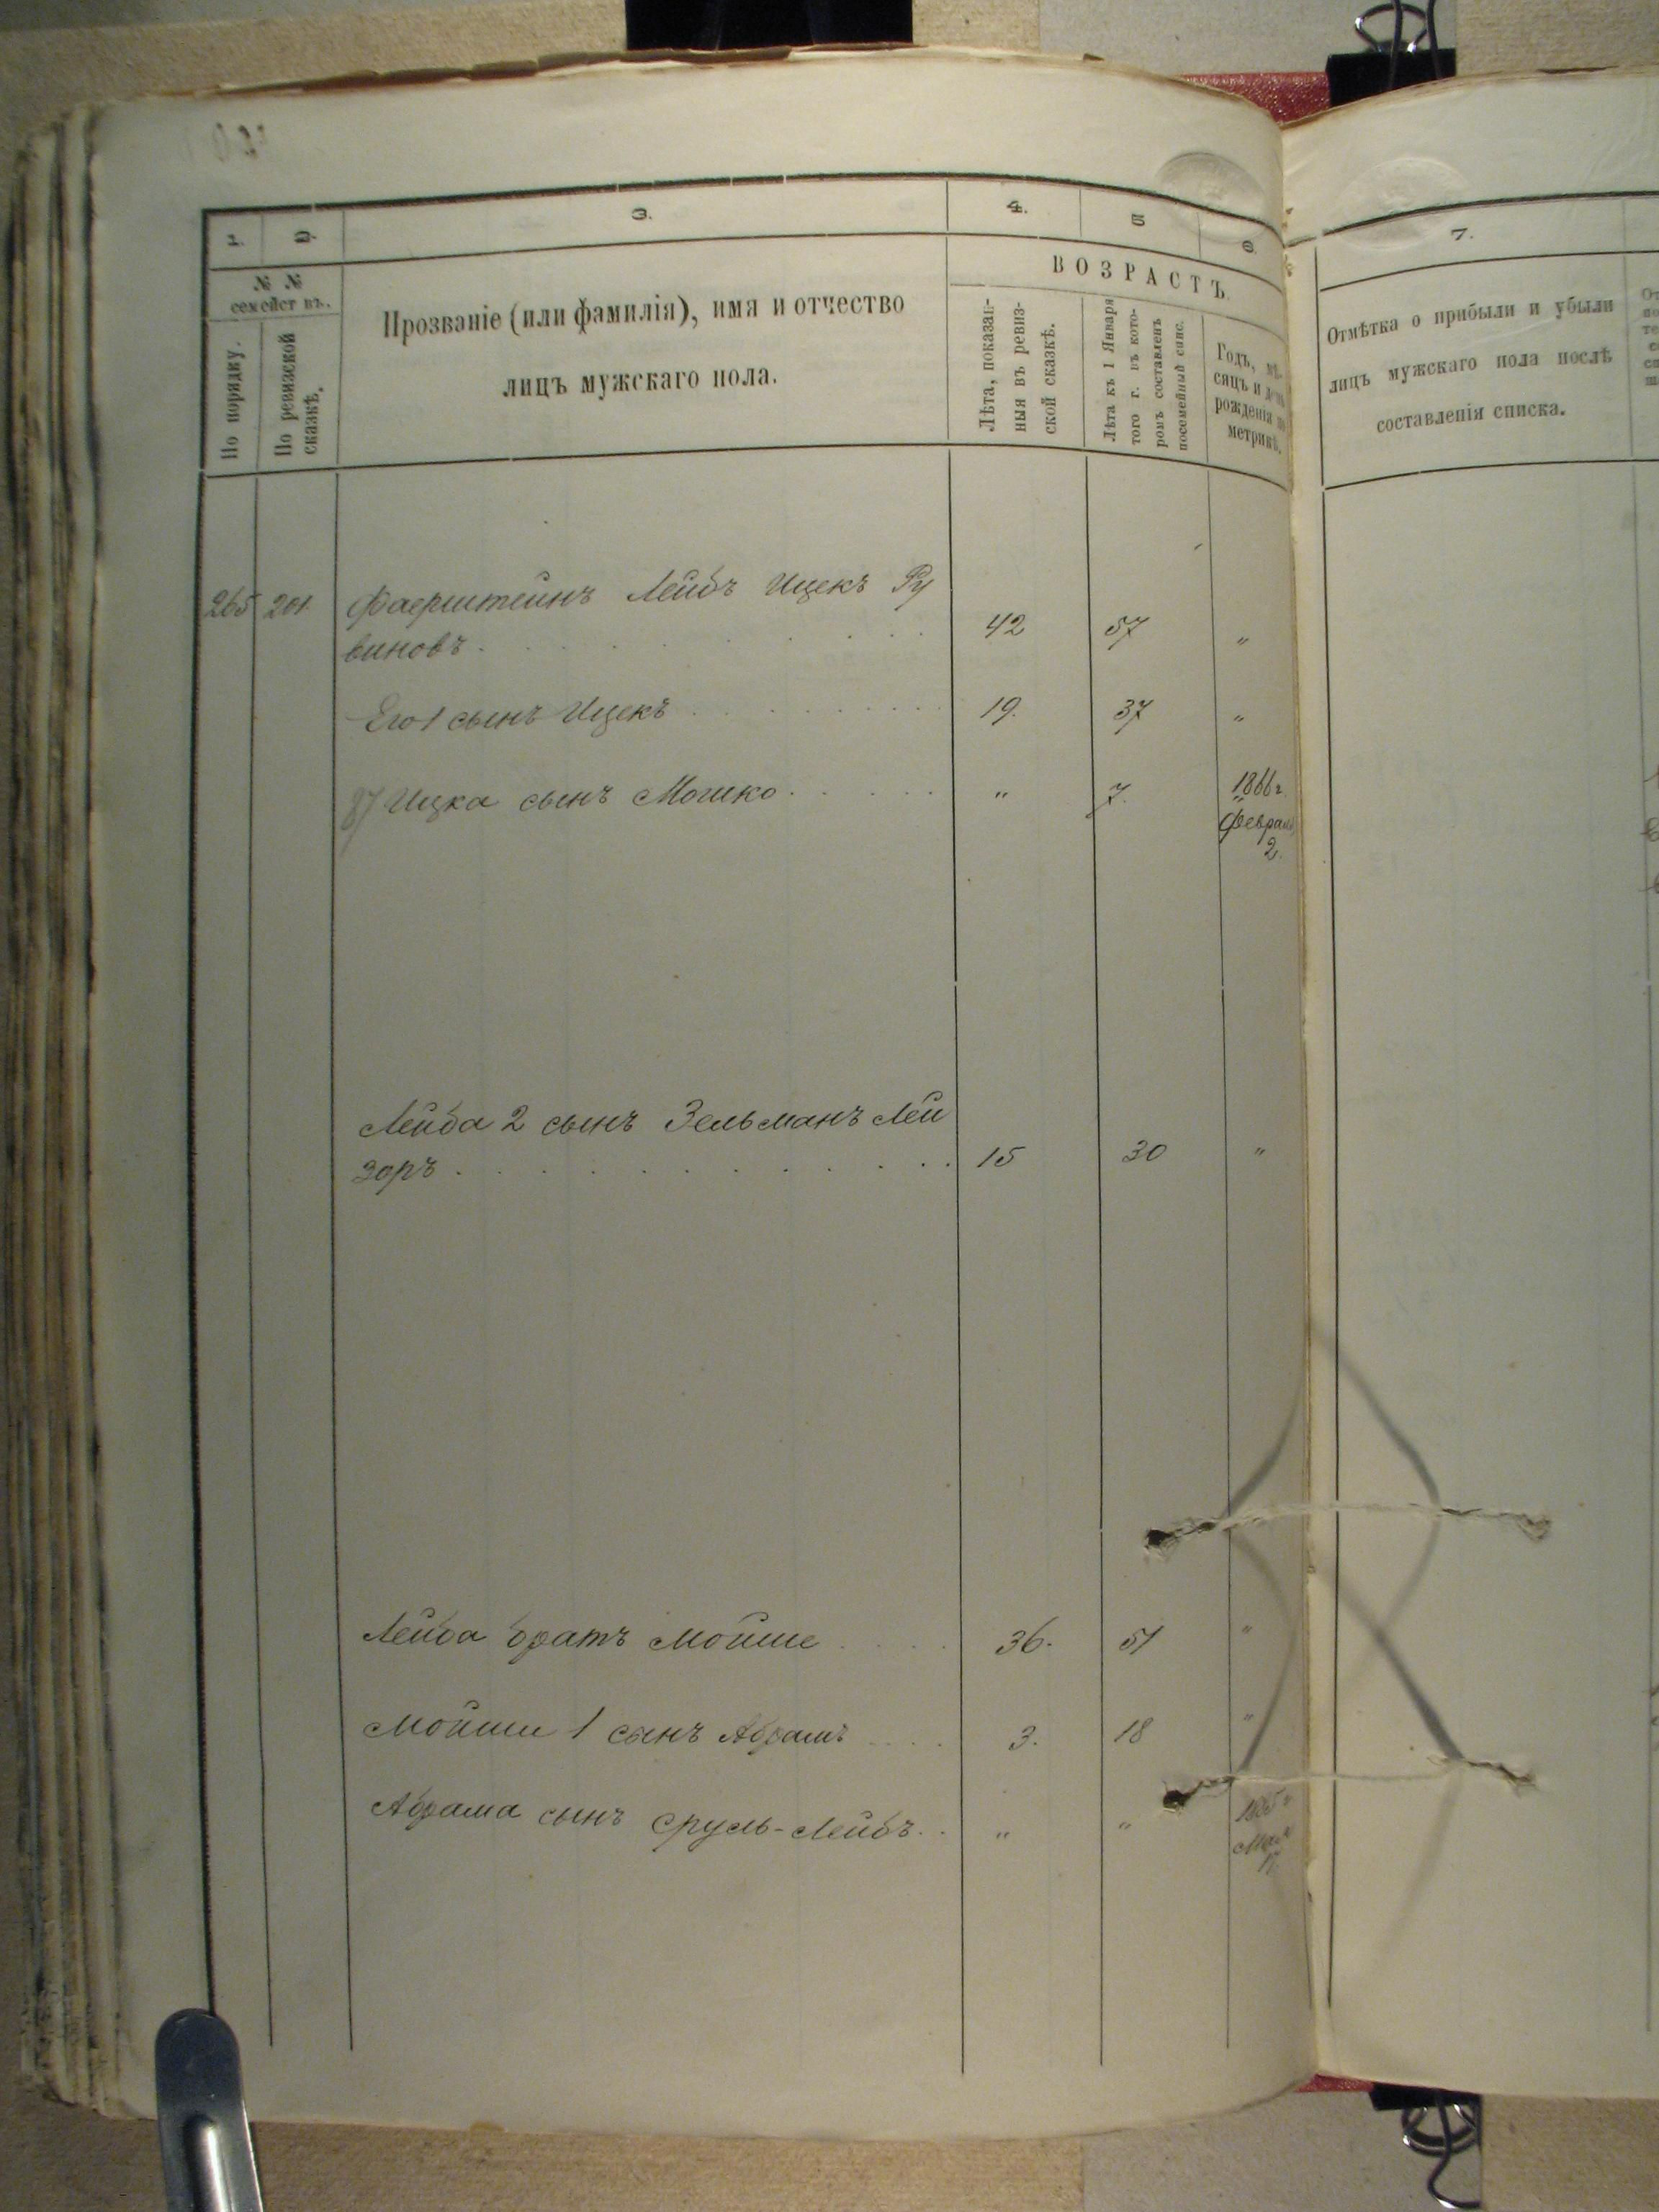 1.
2.
3.
4.
5
6.
7.
№ №
семействъ.
По порядку.
По ревизской
сказкѣ.
Прозваніе (или фамилія), имя и отчество
лицъ мужскаго пола.
ВОЗРАСТЪ.
Лѣта, показан-
ныя въ ревиз-
ской сказкѣ.
Лѣта къ 1 Января
того г. въ кото-
ромъ составленъ
посемейный спис.
Годъ, мѣ-
сяцъ и день
рожденія по
метрикѣ.
Отмѣтка о прибыли и убыли
лицъ мужскаго пола послѣ
составленія списка.
265 201. Фаерштейнъ Лейбъ Ицекъ Ру
виновъ . . . . . . . 42 57 "
Его 1 сынъ Ицекъ . . . . . . . 19. 37 "
87 Ицка сынъ Мошко . . . . . " 7. 1866 г.
Февраля
2.
Лейба 2 сынъ Зельманъ Лей
зоръ . . . . . . . . 15 30 "
Лейба братъ Мойше . . . . 36. 51 "
Мойши 1 сынъ Абрамъ . . . . 3. 18 "
Абрама сынъ Сруль-Лейбъ . . " "